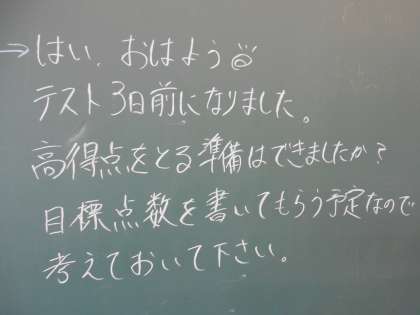 →はい、おはよう
テスト3日前になりました。
高得点をとる準備はできましたか?
目標点数を書いてもらう予定なので
考えておいて下さい。